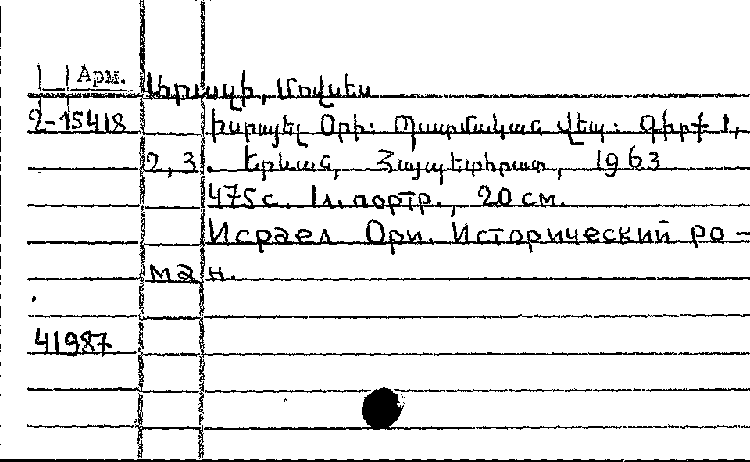 Арм. Արազի, Մովսես
2-15418 Իսրայել Օրի: Պատմական վեպ: Գիրք 1,
2, 3. Երևան, Հայպետհրատ, 1963
475 с. 1 л. портр., 20 см.
Исраел Ори. Исторический ро-
ман.
41987